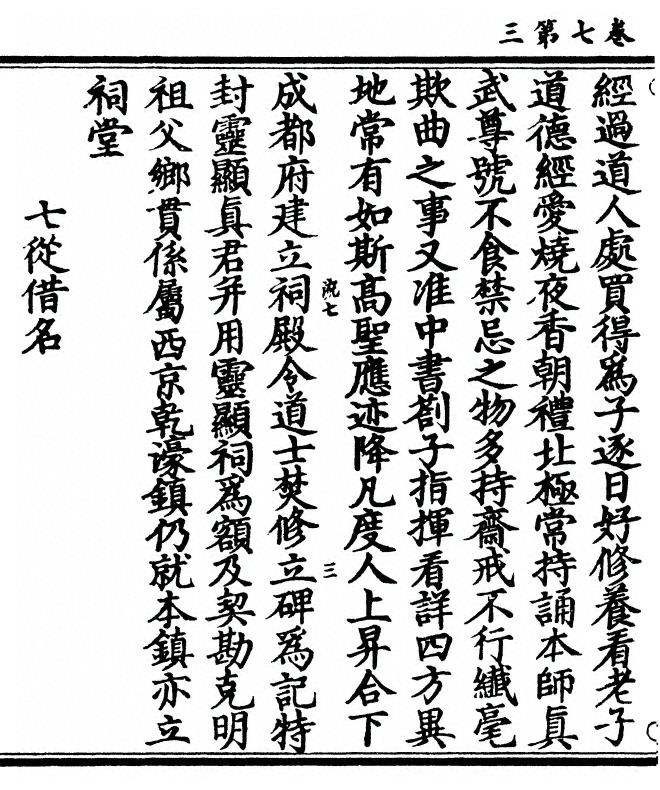 卷七第三
經過道人處買得爲子逐日好修養看老子
道德經愛燒夜香朝禮北極常持誦本師眞
武尊號不食禁忌之物多持齋戒不行纖毫
欺曲之事又准中書劄子指揮看詳四方異
地常有如斯高聖應迹降凡度人上昇合下
流七 三
成都府建立祠殿令道士焚修立碑爲記特
封靈顯眞君并用靈顯祠爲額及契勘克明
祖父鄉貫係屬西京乾濠鎮仍就本鎮亦立
祠堂
七從借名